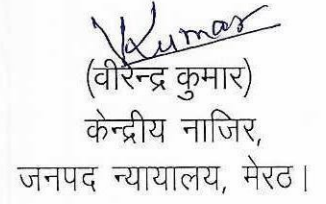 VKumar
(वीरेन्द्र कुमार)
केन्द्रीय नाजिर,
जनपद न्यायालय, मेरठ।